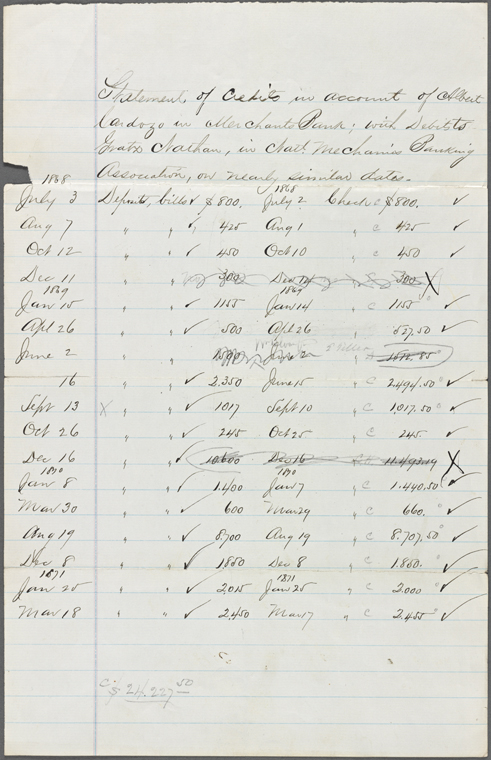 Statement of Credits in account of Albert
Cardozo in Merchants Bank; with Debits to
Gratz Nathan, in Nat'l Mechanics Banking
Association, on nearly similar dates.
1868 1868
July 3 Deposits, bills ✓ $800. July 2 Check c $800. ✓
Aug 7 " " ✓ 425 Aug 1 " c 425 ✓
Oct 12 " " ✓ 450 Oct 10 " c 450 ✓
Dec 11 " 300 Dec 14 " 300 X
1869 1869
Jan 15 " " ✓ 1155 Jan 14 " c 1155 ✓
Apl 26 " " ✓ 500 Apl 26 " 527.50 ✓
June 2 " 1500 June 2 1512.85
16 " " ✓ 2.350 June 15 " c 2.494.50 ✓
Sept 13 X " " ✓ 1017 Sept 10 " c 1.017.50 ✓
Oct 26 " " ✓ 245 Oct 25 " c 245. ✓
Dec 16 " " ✓ 10.600 Dec 16 11.493.19 X
1870 1870
Jan 8 " " ✓ 1.400 Jan 7 " c 1.440.50 ✓
Mar 30 " " ✓ 600 Mar 29 " c 660. ✓
Aug 19 " " ✓ 8.700 Aug 19 " c 8.707.50 ✓
Dec 8 " " ✓ 1850 Dec 8 " c 1.860. ✓
1871 1871
Jan 25 " " ✓ 2.015 Jan 25 " c 2.000 ✓
Mar 18 " " ✓ 2.450 Mar 7 " c 2.455 ✓
C.
C. $ 24.227 50